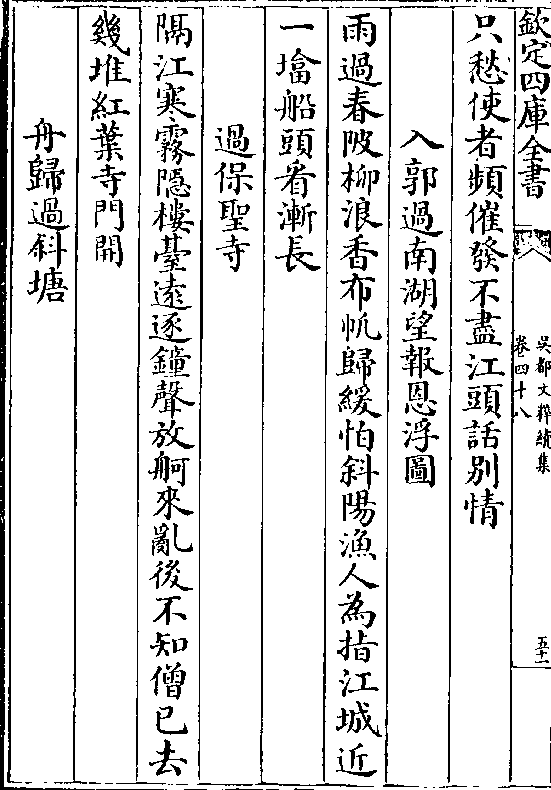 欽定四庫全書
吳都文粹續集
卷四十八
五十二
只愁使者頻催發不盡江頭話別情
入郭過南湖望報恩浮圖
雨過春陂柳浪香布帆歸緩怕斜陽漁人為指江城近
一墖船頭看漸長
過保聖寺
隔江寒霧隱樓臺遠逐鐘聲放舸來亂後不知僧已去
幾堆紅葉寺門開
舟歸過斜塘